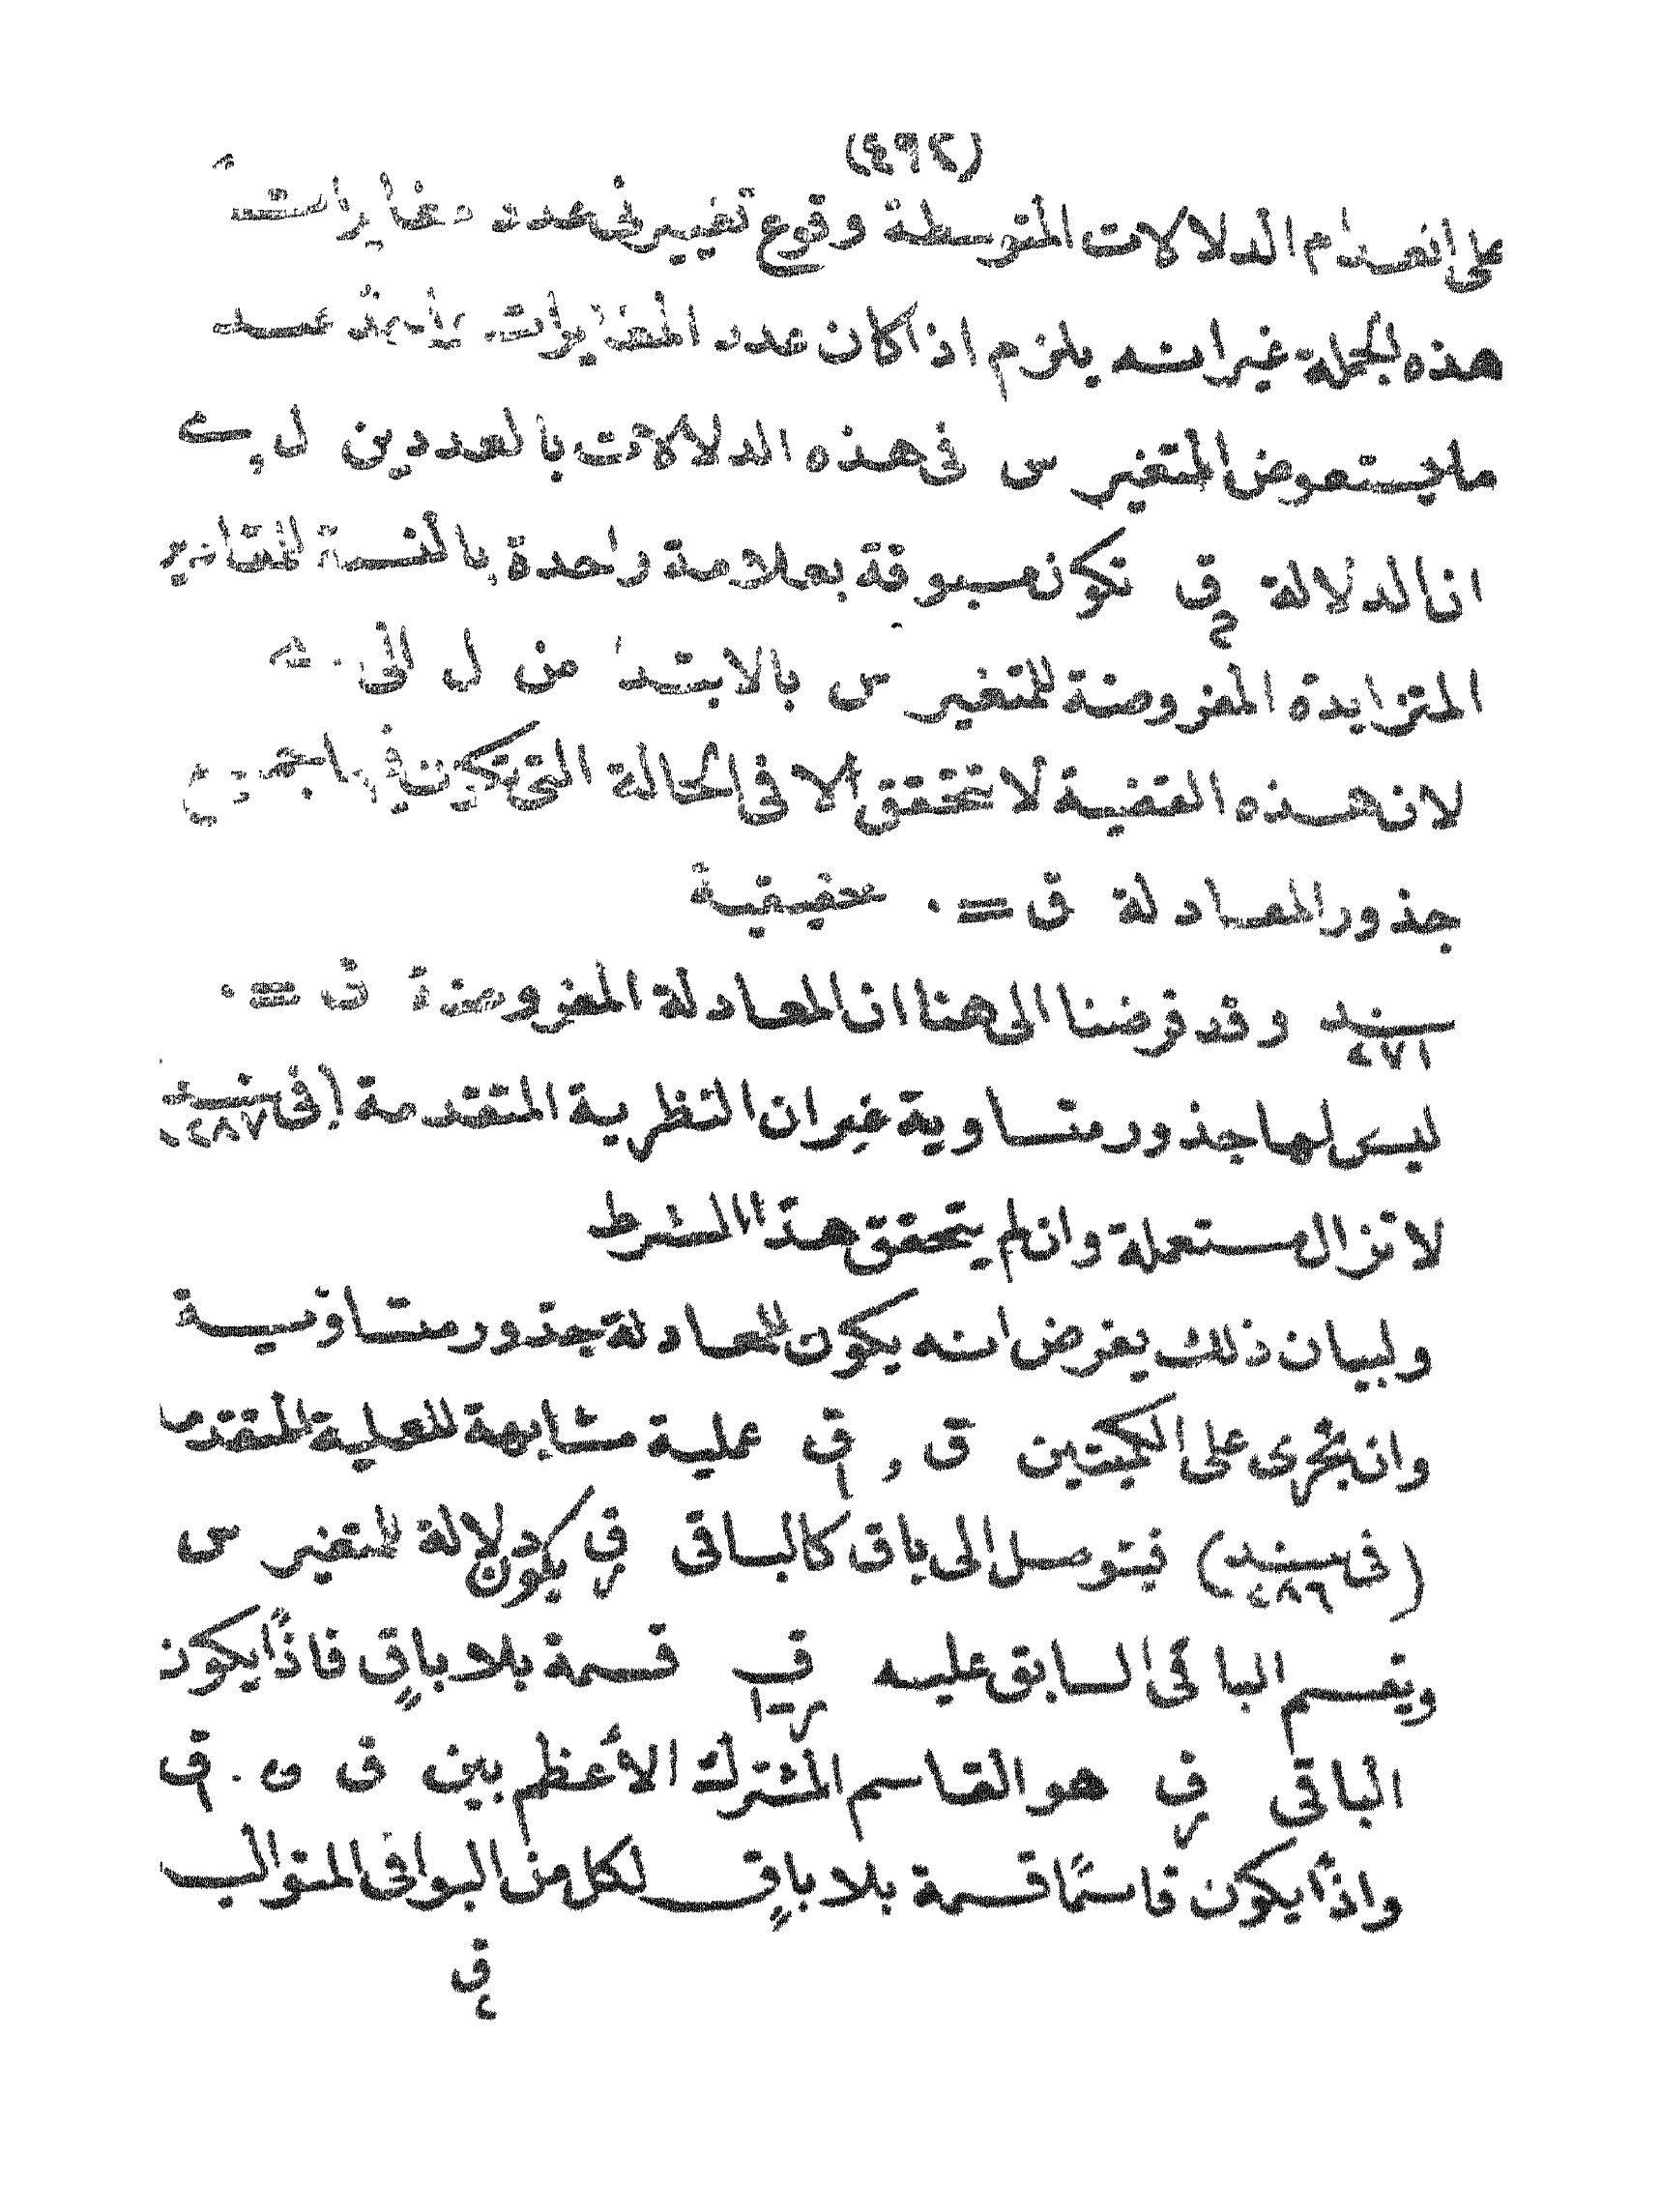 (٤٩٢)
على انعدام الدلالات المتوسطة وقوع تغيير في عدد مغايرات
هذه الجملة غير انه يلزم اذا كان عدد المغايرات عند
ما يستعوض المتغير س في هذه الدلالات بالعددين ل و ے
ان الدلالة ق٢ تكون مسبوقة بعلامة واحدة بالنسبة للمقادير
المتزايدة المفروضة للمتغير س بالابتداء من ل الى ے
لان هذه القضية لا تتحقق الا في الحالة التي تكون فيها جميع
جذور المعادلة ق = ٠ حقيقية
سند ٤٧١ وقد فرضنا الى هنا ان المعادلة المفروضة ق = ٠
ليس لها جذور متساوية غير ان النظرية المتقدمة (في سند ٤٨٧)
لا تزال مستعملة وان لم يتحقق هذا الشرط
ولبيان ذلك يفرض انه يكون للمعادلة جذور متساوية
وان تجرى على الكميتين ق و ق١ عملية مشابهة للعملية المتقدمة
(في سند ٤٨٦) فيتوصل الى باق كالباقى قر يكون دلالة للمتغير س
ويقسم الباقى السابق عليه قر-١ قسمة بلا باقٍ فاذًا يكون
الباقى قر هو القاسم المشترك الأعظم بين ق و ق١
واذًا يكون قاسمًا قسمة بلا باقٍ لكل من البواقى المتوالية
ق٢